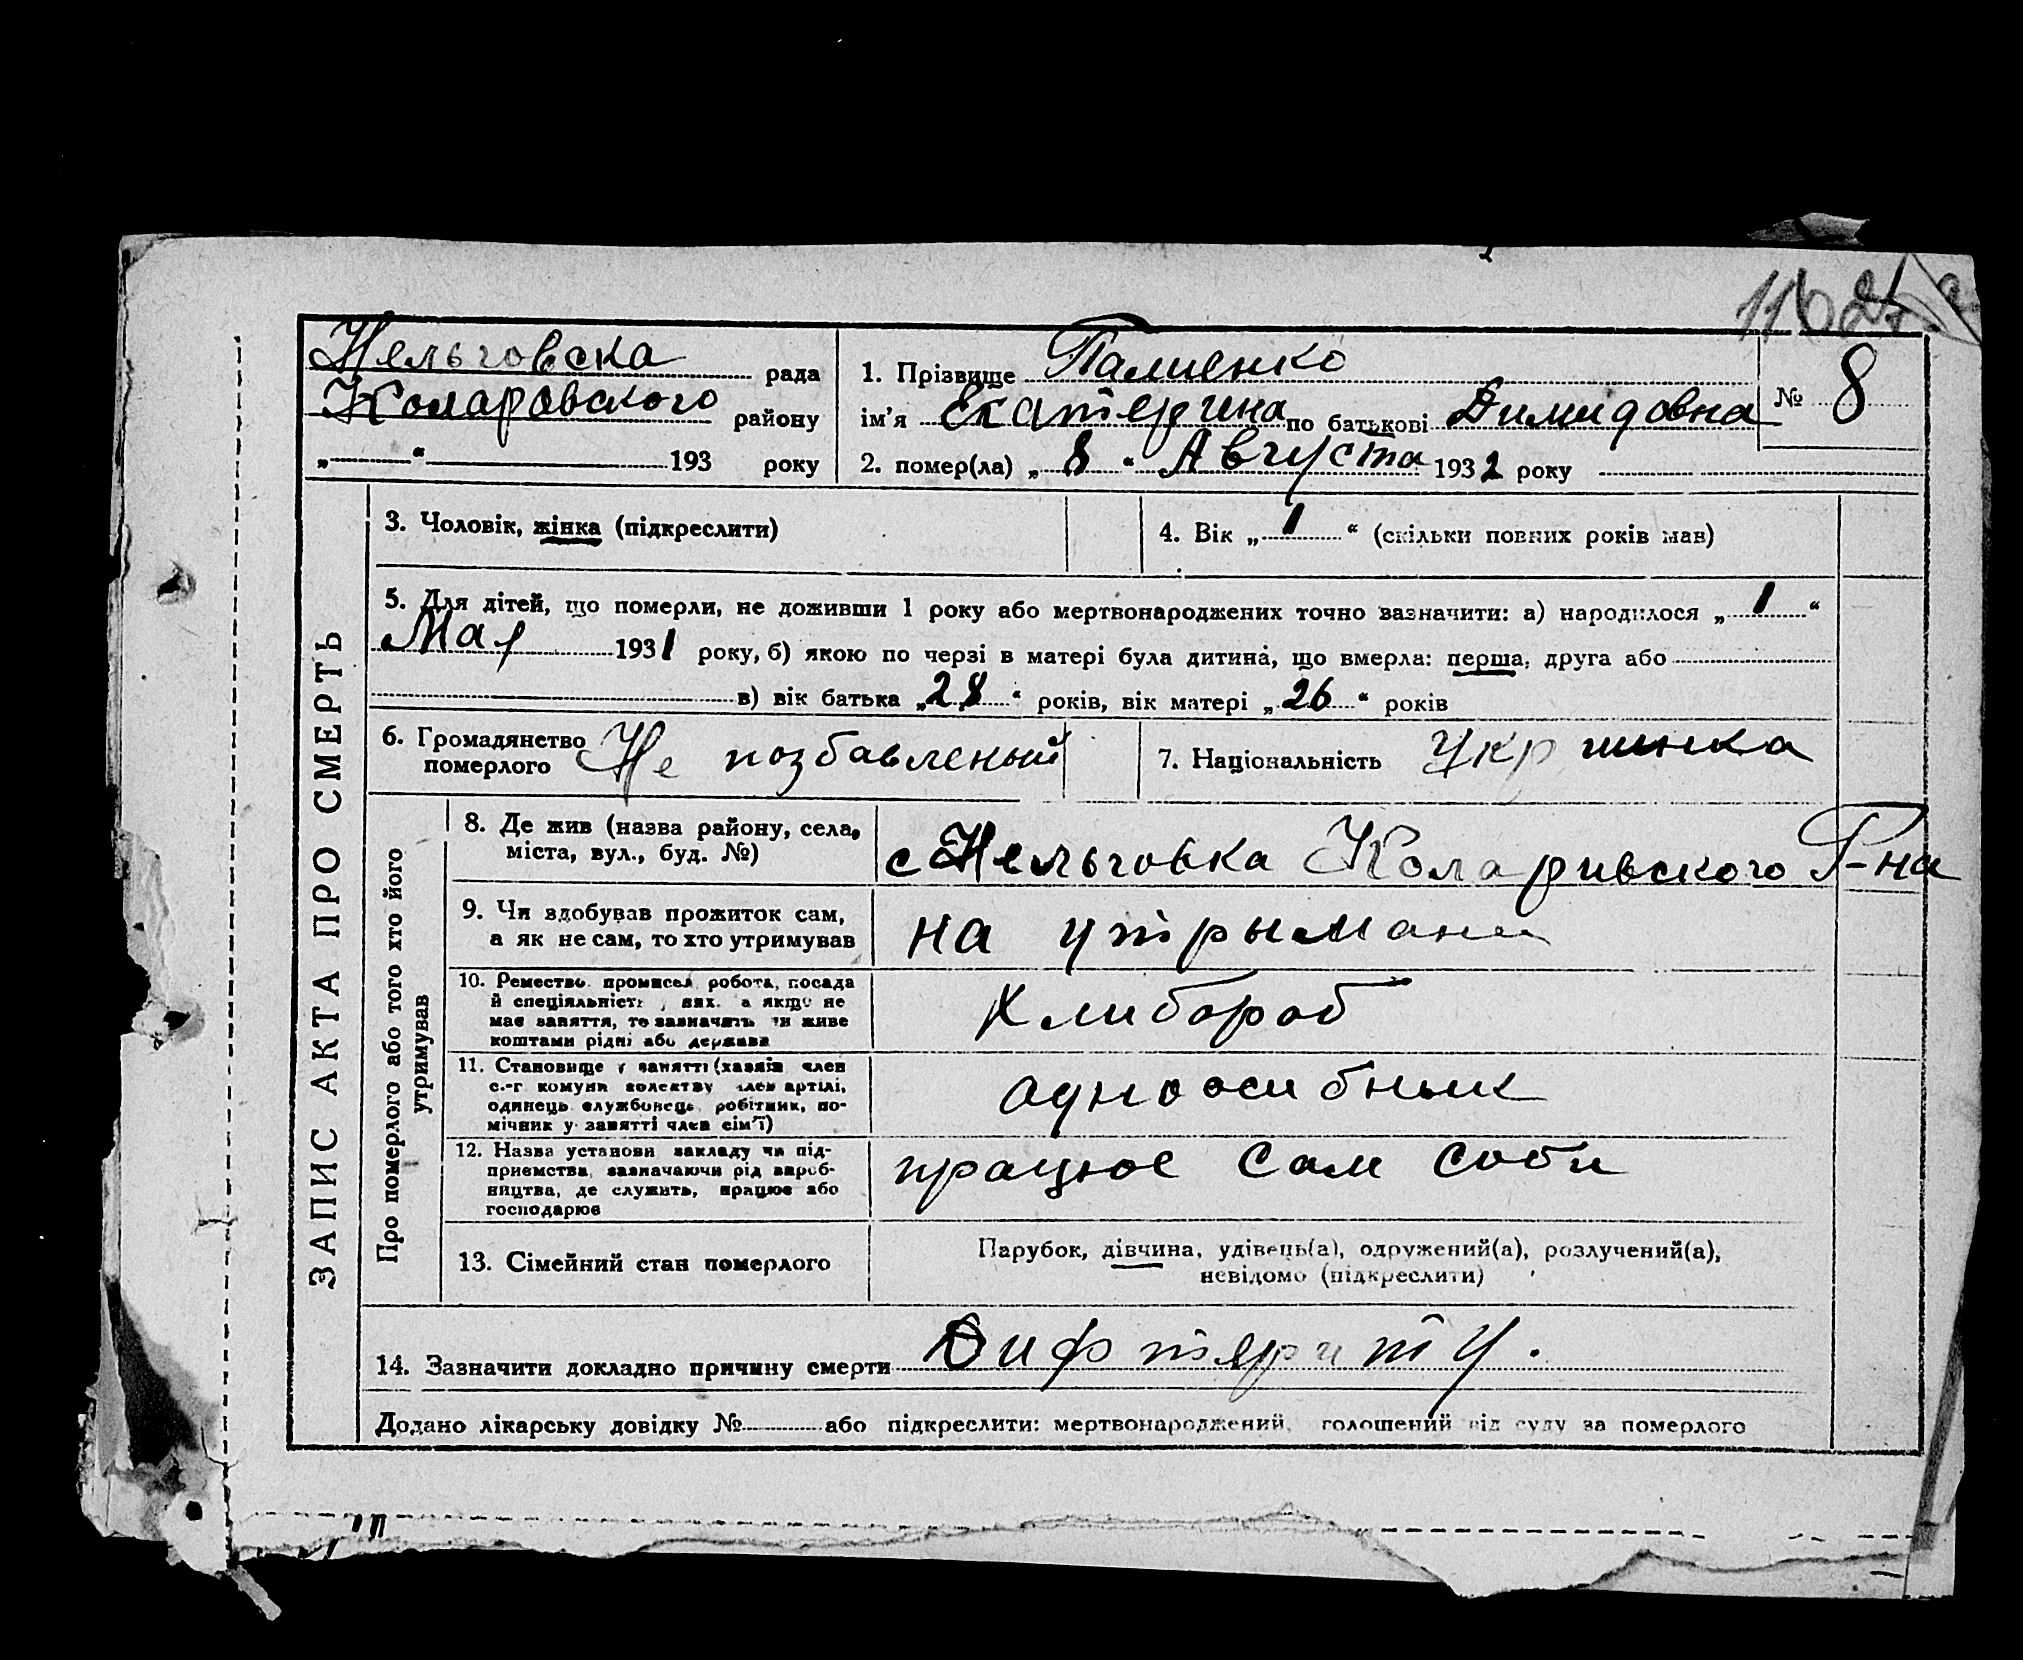 Нельговска рада
Коларовского району
„ “ 193 року
1. Прізвище Палиенко
ім’я Екатерина по батькові Димидовна
№ 8
2. помер(ла) „ 8 “ Августа 1932 року
ЗАПИС АКТА ПРО СМЕРТЬ
3. Чоловік, жінка (підкреслити)
4. Вік „ 1 “ (скільки повних років мав)
5. Для дітей, що померли, не доживши 1 року або мертвонароджених точно зазначити: а) народилося „ 1 “
Мая 1931 року, б) якою по черзі в матері була дитина, що вмерла: перша, друга або
в) вік батька „ 28 “ років, вік матері „ 26 “ років
6. Громадянство померлого Не позбавленый
7. Національність Укр инка
Про померлого або того хто його утримував
8. Де жив (назва району, села, міста, вул., буд. №)
с Нельговка Коларивского Р-на
9. Чи здобував прожиток сам, а як не сам, то хто утримував
на утрымани
10. Ремество, промисел, робота, посада й спеціяльність , а якщо не має заняття, то зазначить чи живе коштами рідні або держави
Хлибороб
11. Становище у занятті (хазяїн член с.-г комуни колективу член артілі, одинець службовець, робітник, помічник у занятті член сім’ї)
одноосибнык
12. Назва установи закладу чи підприемства, зазначаючи рід виробництва, де служить, працює або господарює
працюе сам соби
13. Сімейний стан померлого
Парубок, дівчина, удівець(а), одружений(а), розлучений(а),
невідомо (підкреслити)
14. Зазначити докладно причину смерти Дифтяриту.
Додано лікарську довідку № або підкреслити: мертвонароджений, голошений від суду за померлого